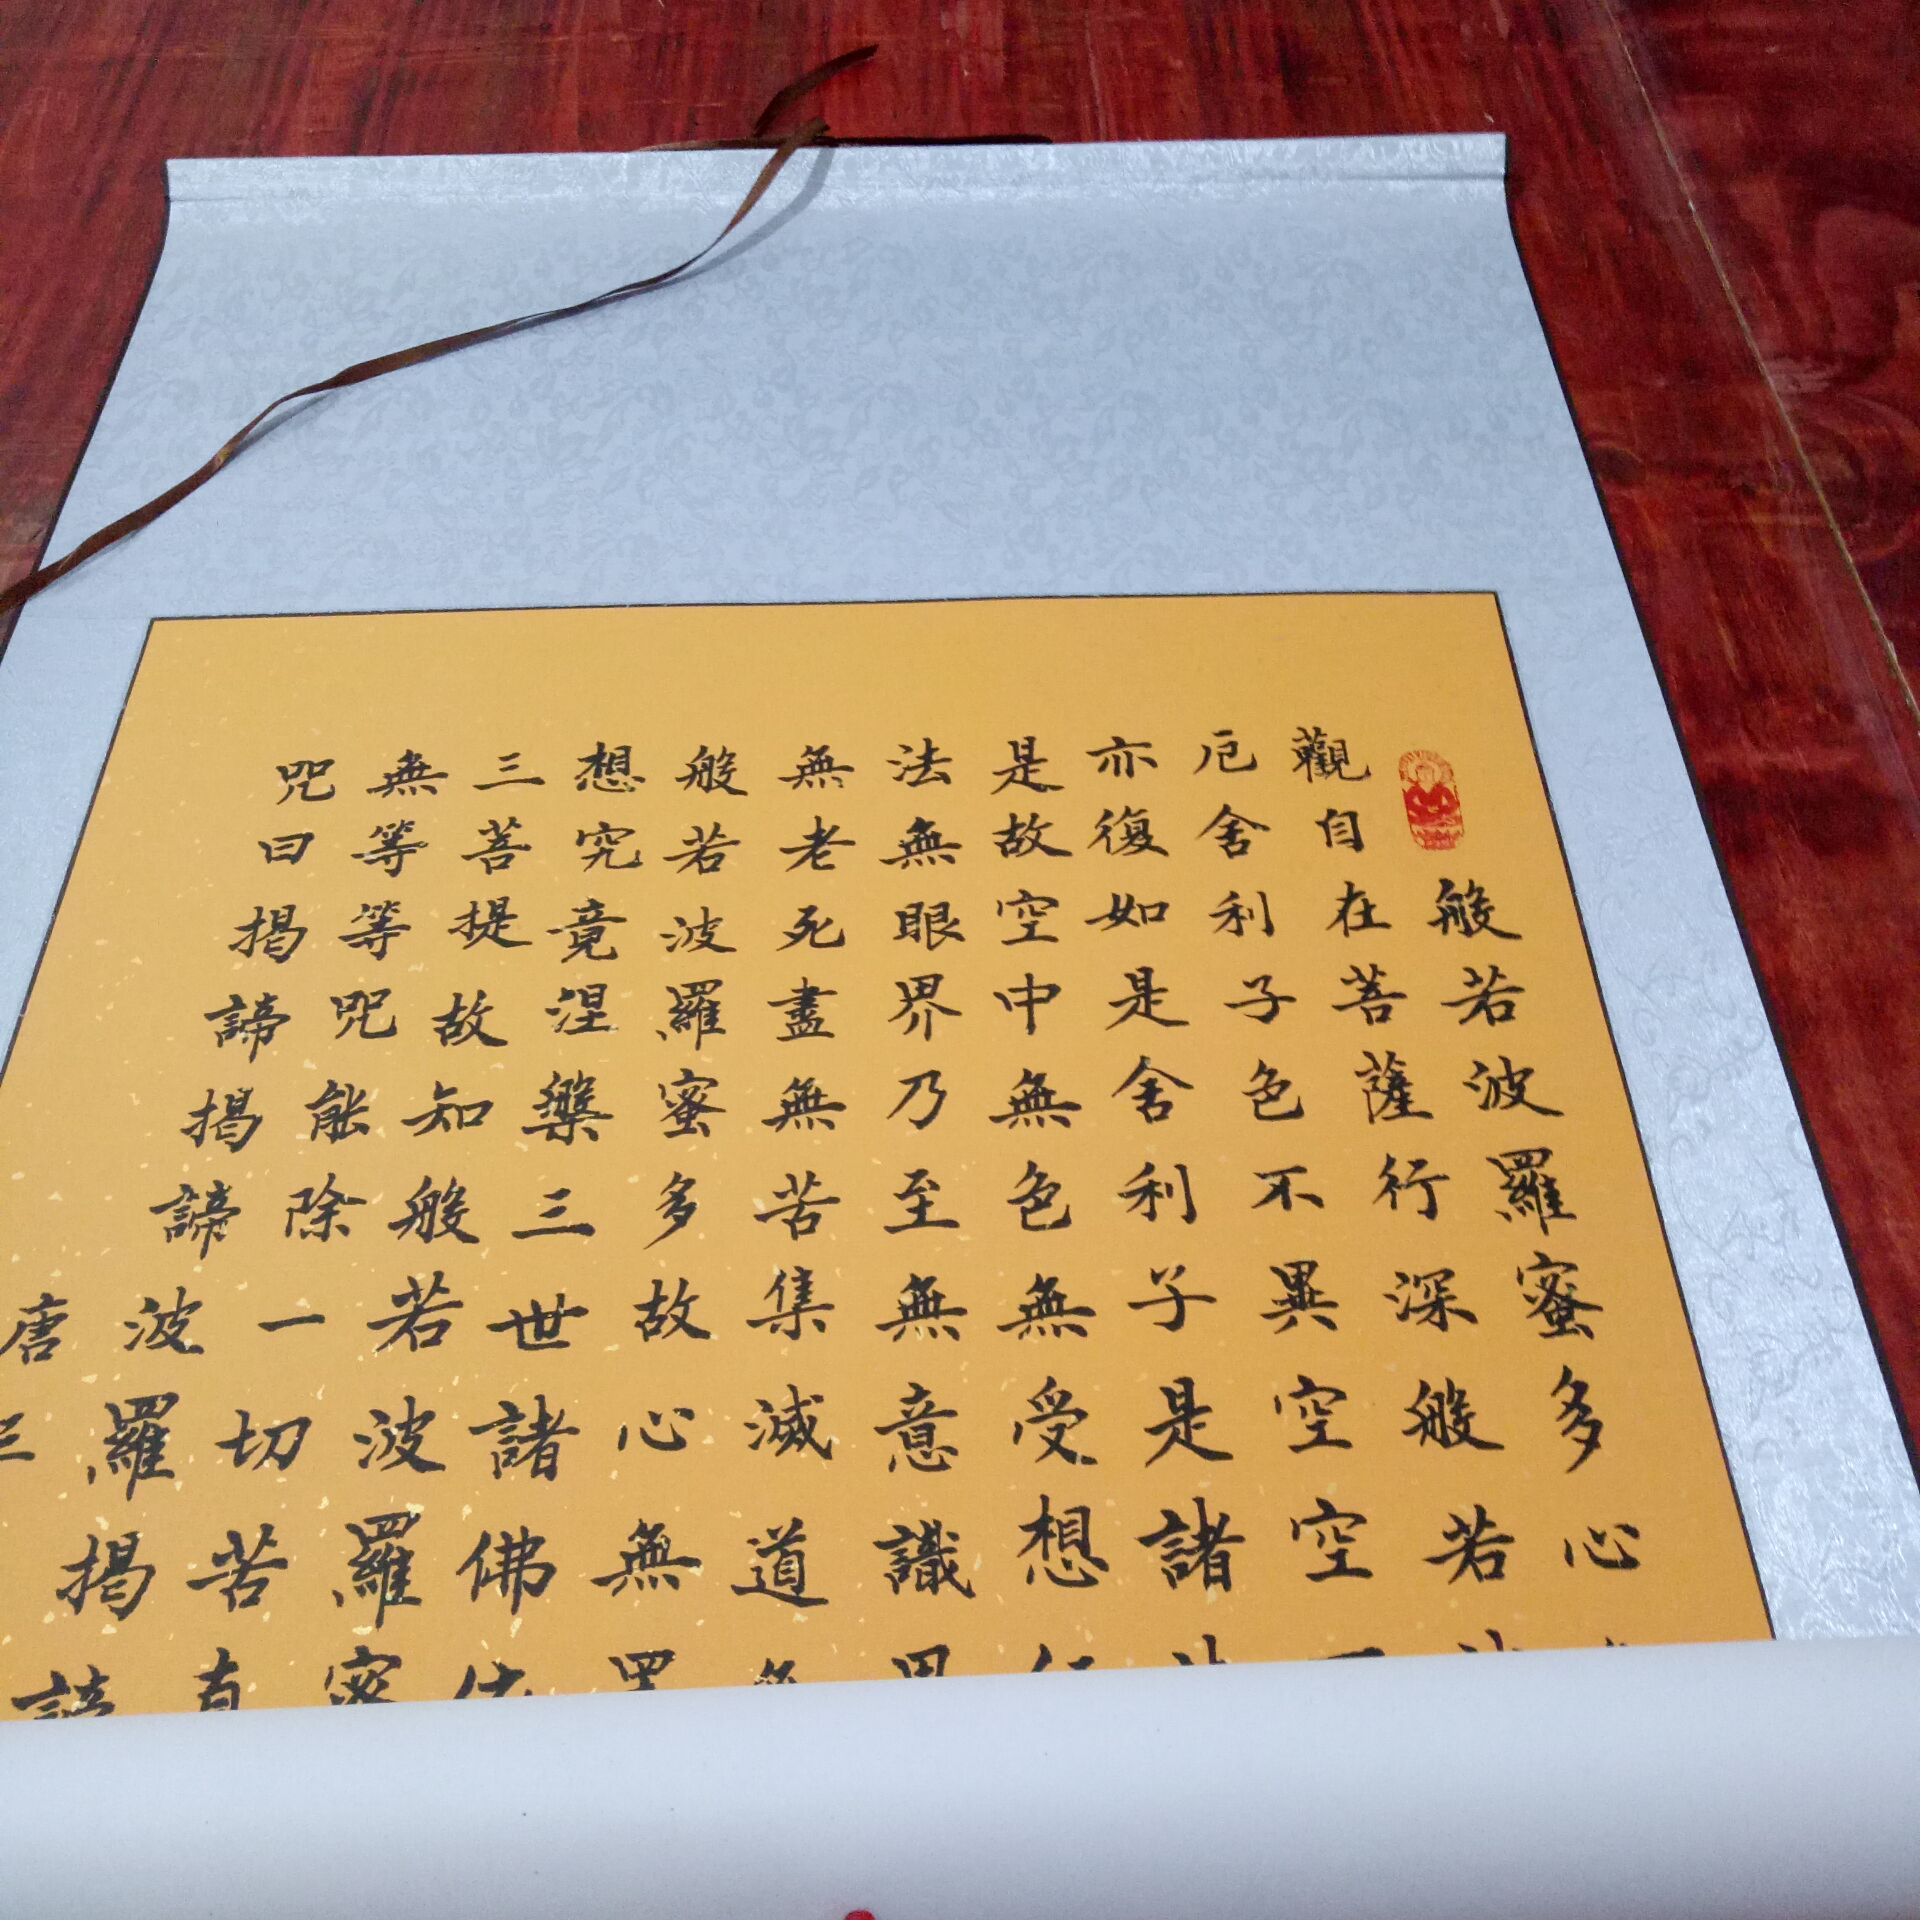 般若波羅蜜多心
觀自在菩薩行深般若波
厄舍利子色不異空空不
亦復如是舍利子是諸法
是故空中無色無受想行
法無眼界乃至無意識界
無老死盡無苦集滅道無
般若波羅蜜多故心無罣
想究竟涅槃三世諸佛依
三菩提故知般若波羅蜜
無等等咒能除一切苦真
咒曰揭諦揭諦波羅揭諦
唐三